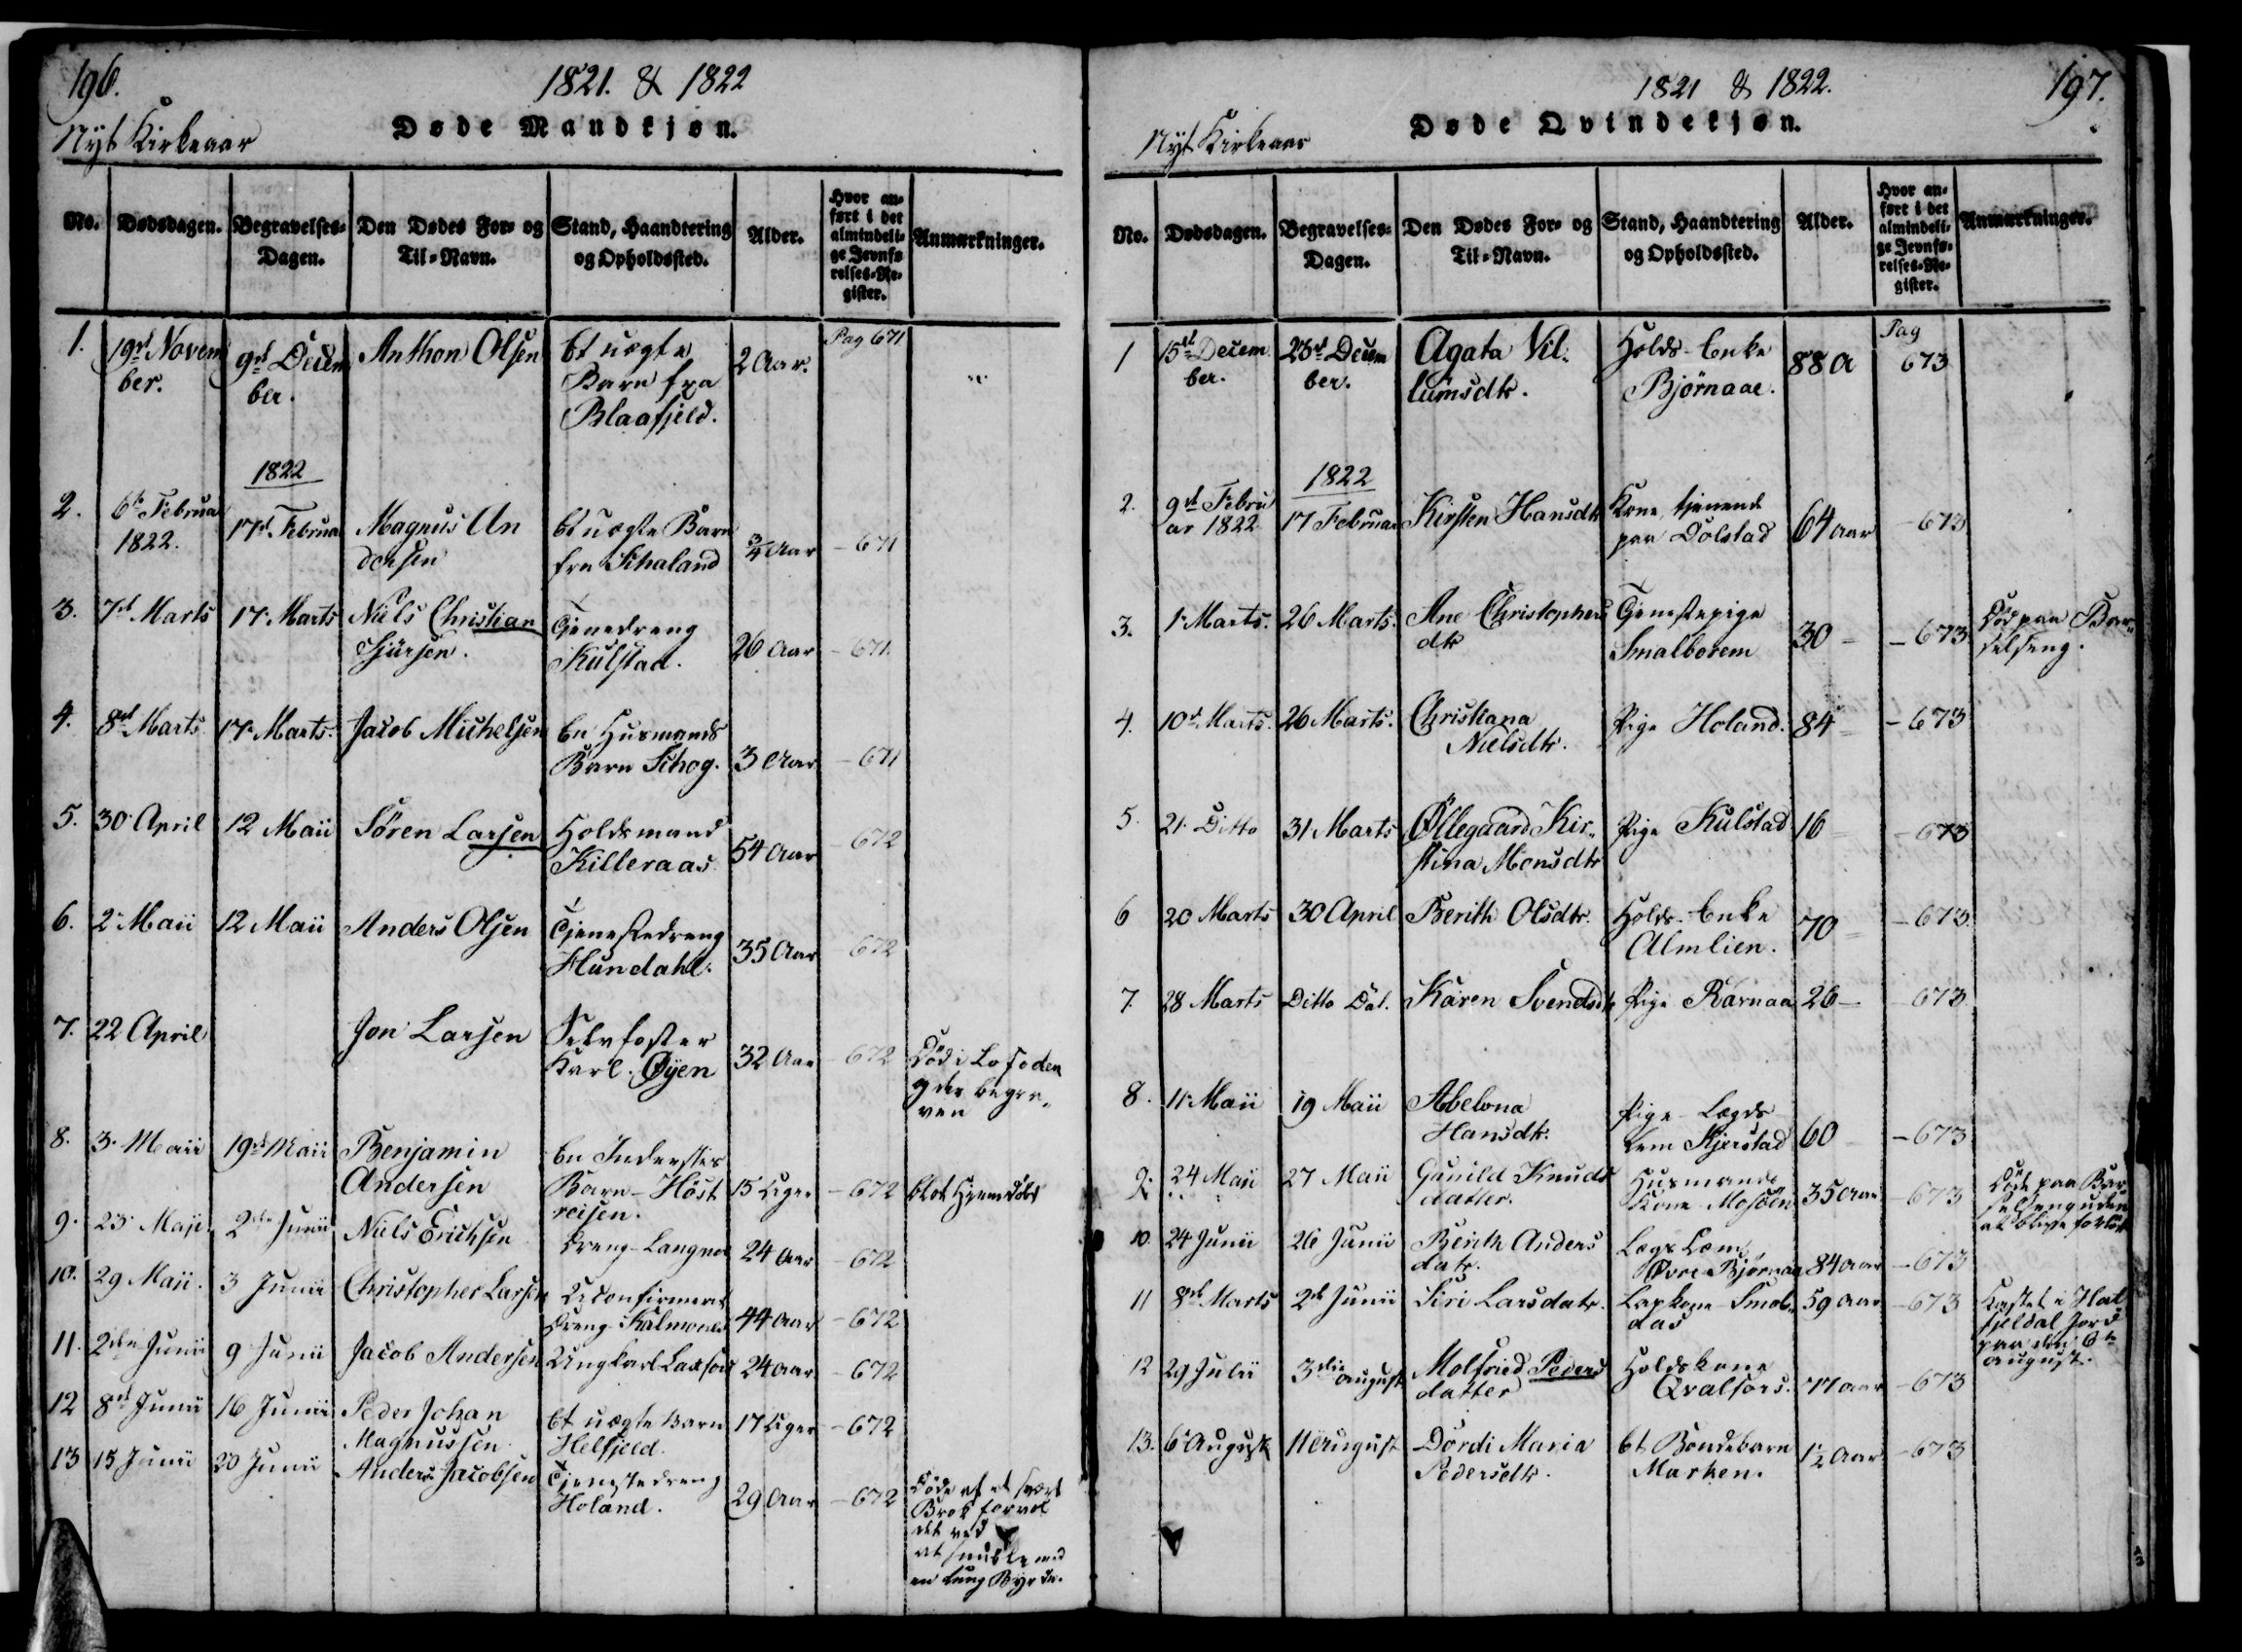 196.
1821. & 1822
Døde Mandkjøn.
Nyt Kirkeaar
No. Dødsdagen. Begravelses-Dagen. Den Dødes For- og Til-Navn. Stand, Haandtering og Opholdssted. Alder. Hvor anført i det almindelige Jevnførelses-Register. Anmærkninger.
1. 19de November. 9de December. Anthon Olsen Et uægte Barn fra Blaafjeld. 2 Aar. Pag 671
1822
2. 6te Februar 1822. 17de Februar Magnus Andersen Et uægte Barn fra Schaland 3/4 Aar - 671
3. 7de Marts 17. Marts Niels Christian Sjursen. Tjenedreng Kulstad. 26 Aar - 671
4. 8de Marts 17. Marts. Jacob Michelsen En Husmands Barn Schog. 3 Aar - 671
5. 30 April 12 Maii Søren Larsen Holdsmand Killeraas 54 Aar - 672
6. 2. Maii 12 Maii Anders Olsen Tjenestedreng Hundahl. 35 Aar 672
7. 22 April Jon Larsen Karl. Øyen 32 Aar - 672 Død i Lofoden og der begraven
8. 3. Maii 19de Maii Benjamin Andersen En Inderstes Barn - Høstreisen. 15 Uger - 672 blot Hjemdøbt
9. 23. Maji 2den Junii Niels Erichsen Dreng - Langnes 24 Aar - 672
10. 29 Maii. 3 Junii Christopher Larsen Uconfirmeret Dreng - Kalmones 44 Aar - 672
11. 2den Junii 9 Junii Jacob Andersen Ungkarl Laxfors 24 Aar - 672
12 8de Junii 16 Junii Peder Johan Magnussen Et uægte Barn Helfjeld. 17 Uger - 672
13 15 Junii 20 Junii Anders Jacobsen Tjenestedreng Holand. 29 Aar - 672 Døde af et svært Brok forvoldet ved at snuble med en tung Byrde.
197.
1821 & 1822.
Døde Qvindekjøn.
Nyt Kirkeaar
No. Dødsdagen. Begravelses-Dagen. Den Dødes For- og Til-Navn. Stand, Haandtering og Opholdssted. Alder. Hvor anført i det almindelige Jevnførelses-Register. Anmærkninger.
1 15de December. 23de December. Agata Villumsdtr. Holds-Enke Bjørnaae. 88 A Pag 673
1822
2. 9de Februar 1822 17 Februar Kirsten Hansdtr Kone tjenende paa Dolstad 64 aar - 673
3. 1. Marts. 26 Marts. Ane Christophersdtr Tjenestepige Smalborem 30 - - 673 Død paa Barselseng.
4. 10de Marts. 26 Marts. Christiana Nielsdtr. Pige Holand. 84 - - 673
5. 21. Ditto 31 Marts Øllegaard Kirstina Monsdtr Pige Kulstad 16 - 673
6 20 Marts 30 April Berith Olsdtr. Holds-Enke Almlien. 70 - - 673.
7. 28 Marts Ditto Dat. Karen Svendsdtr Pige Ravnaa 26 - 673
8. 11. Maii 19 Maii Abelona Hansdtr. Pige - Lægdslem Kjerstad 60 - 673
9. 24 Maii 27 Maii Gunild Knudsdatter. Husmands Kone Mosöen 35 Aar - 673 Døde paa Barselseng uden at blive forløst
10. 24 Junii 26 Junii Berith Andersdatr. Lægs Lem Øvre Bjørnaa 84 aar - 673
11 8de Marts 2de Junii Siri Larsdatr. Lapkone - Smoldas 59 aar - 673 Kastet i Hatfjeldal Jord paa den 6te august.
12 29 Julii 3die august Molfried Pedersdatter Holdskone Qvalfors. 77 aar - 673
13. 6. August 11 August Dordi Maria Pedersdtr. Et Bondebarn Marken. 1 1/2 Aar - 673